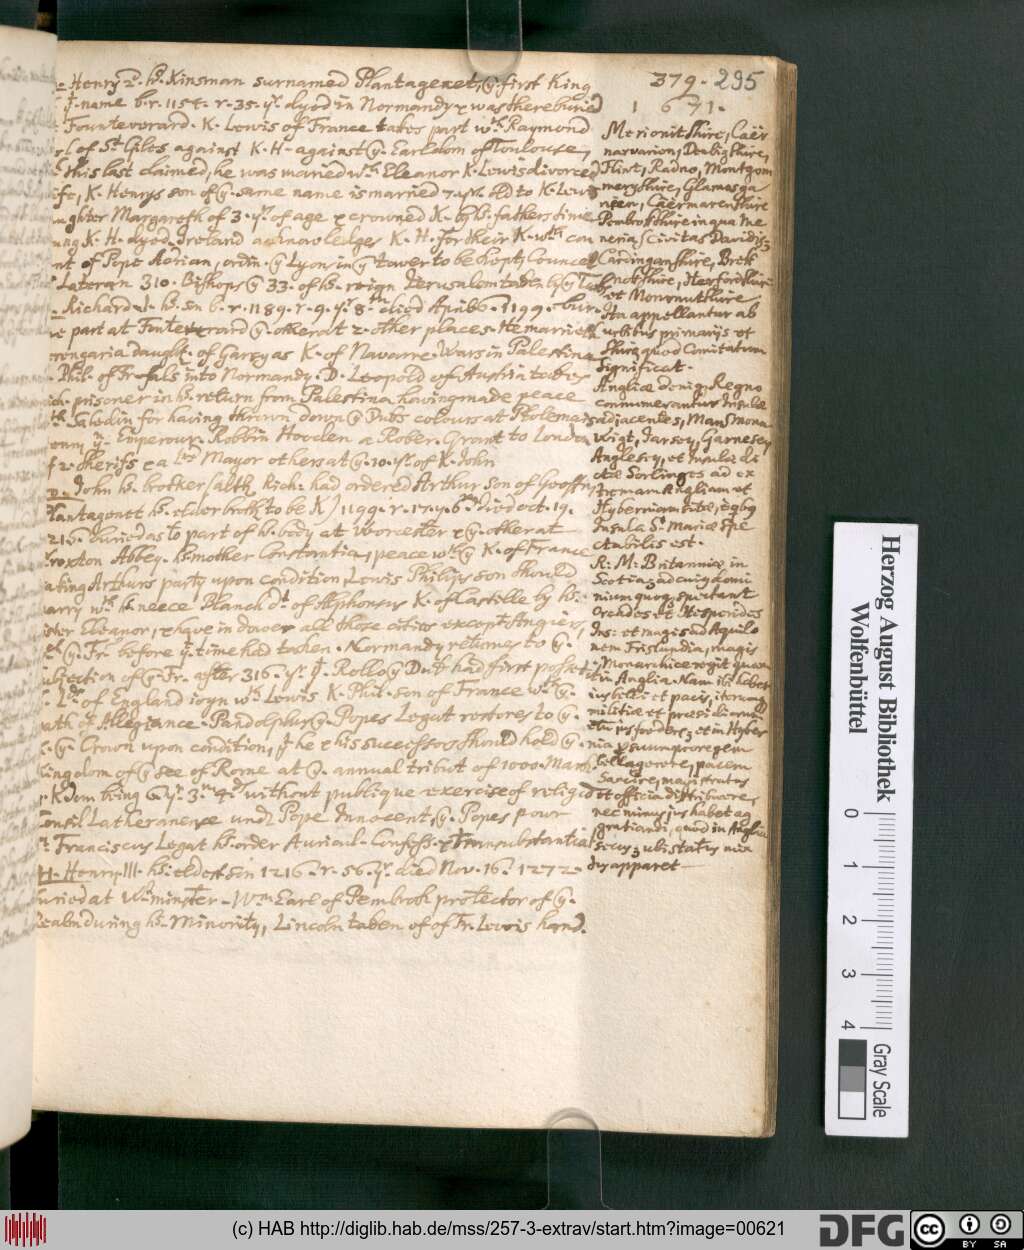 Henry 2d. hs. Kinsman surnamed Plantagenet, ye first King
name b. r. 1154. r. 35. ys. dyed in Normandy & was there buried
Founteverard. K. Lewis of France takes part wth Raymond
of St Giles against K. H. against ye. Earldom of Toulouse,
this last claimed, he was maried wth Eleanor K. Lewis divorced
K. Henrys son of ye. same name is married 7. ys. old to K. Lewis
Margareth of 3. ys. of age & crowned K. by hs. fathers time
K. H. dyed Ireland acknowledges K. H. for their K. wth con
of Pope Adrian, ye Lyons in ye tower to be kept, Councel
Lateran 310. Bishops ye 33. of hs. reign Jerusalem taken by ye
Richard I. hs. son b. r. 1189. r. 9. ys. 8. m died April 6. 1199. bur.
part at ye. other at 2. other places. He married
daught. of Garzyas K. of Navarre. Wars in Palestina
Phil. of Fr. fals into Normandy. D. Leopold of Austria takes
prisoner in hs. return from Palestina having made peace
wth. Saladin for having thrown down ye Duks colours at Ptolemais
Emperour. Robbin Hooden a Rober. Grant to London
of 2. sherifs & a Ld Mayor others at ye. 10. ys. of K. John
John hs. brother (alth. Rich. had ordered Arthur son of Geoffry
Plantagenet hs. elder broth. to be K) 1199. r. 17. y. 6. m Died Oct. 19.
buried as to part of hs. body at Worcester & ye. other at
Croxton Abbey. hs. mother Constantia, peace wth ye K. of France
taking Arthurs party upon condition, Lewis Philips son should
marry wth hs. neece Blanch dt. of Alphonsus K. of Castille by hs.
sister Eleanor, & have in dower all those cities except Angiers,
ye. Fr. before yt time had taken. Normandy returns to ye.
subjection of ye. Fr. after 316. ys. yt Rollo ye Duk had first possest
Lds. of England ioyn wth Lewis K. Phil. son of France wth ye.
oath of Allegiance. Pandolphus ye. Popes Legat restores to ye.
K. ye. Crown upon condition, yt he & his successors should hold ye.
Kingdom of ye see of Rome at ye. annual tribut of 1000. Marks
Kdom being 6 ys. 3. m without publique exercise of religion
Consil Latheranense undr Pope Innocent, ye. Popes powr
St. Franciscus Legat hs. order Auricul. Confess. & transubstantiat
H. Henry III. hs. eldest son 1216. r. 56. ys. died Nov. 16. 1272.
buried at Wtminster. Wm Earl of Pembrok protector of ye.
Realm during hs. Minority, Lincoln taken of of Fr. Lewis hand.
379. 295
1671.
Merionitshire, Caer
narvarion, Denbigshire,
Flint, Radno, Montgom
meryshire, Glamorga
nien, Caermarenshire
Pembrokshire in qua Me
neria, (civitas Davidis,
Cardinganshire, Brek
nokshire, Herfordshire
et Monmutshire
Ita appellantur ab
urbibus primariis et
Shire quod Comitatum
significat.
Angliae deniq. Regno
connumerantur Insulae
adjacentes, Man mona
Wigt, Jarsey, Garnesey
Anglesey, et Insulae di
ctae Sorlinges ad ex
tremam Angliam et
Hyberniam sitae, e qbg
Insula S. Mariae spe
ctabilis est.
R: M: Britanniae in
Scotia, ad cuius domi
nium quoq. spectant
Orchades et Hesperides
Ins: et magis ad Aquilo
nem Frislandia, magis
Monarchice regit quam
in Anglia. Nam ibi habet
ius belli et pacis, iterum
militiae et praesidiorum
et in Hyber
nia suum proregem
Collagerete, pacem
Sancire, magistratus
et officia distribuere,
nec minus jus habet ag
gratiandi, quod in Anglia
secus, ubi status
apparet
Herzog August Bibliothek
Wolfenbüttel
0 1 2 3 4
Gray Scale
(c) HAB http://diglib.hab.de/mss/257-3-extrav/start.htm?image=00621
DFG
cc BY SA